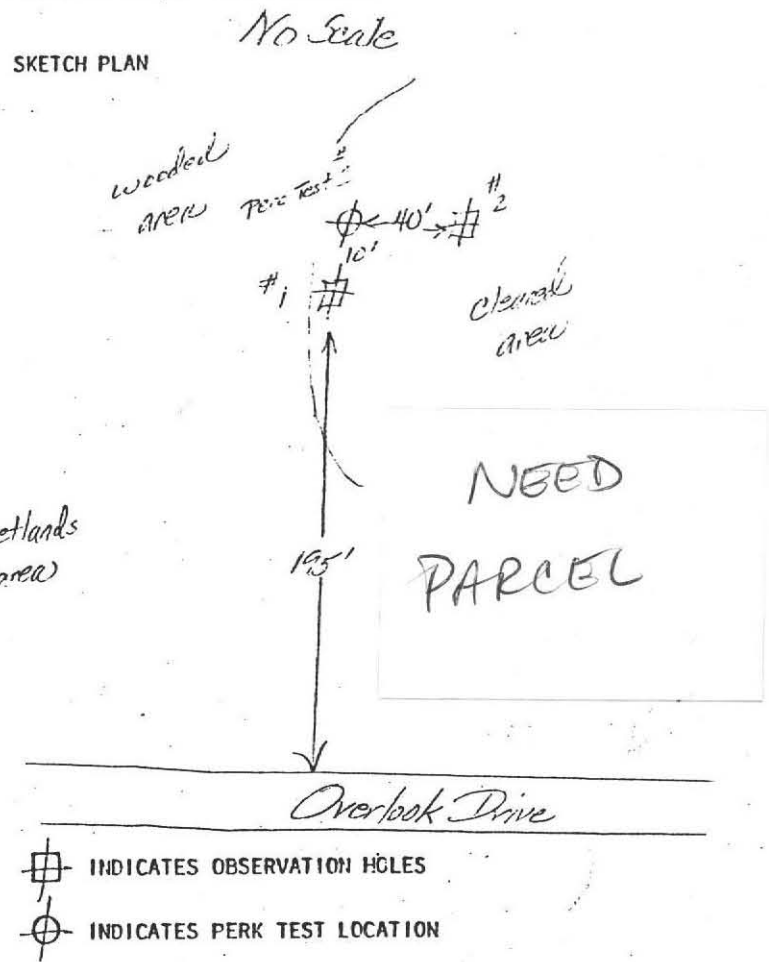 No Scale
SKETCH PLAN
wooded
area
Perc Test #
40'
#2
10'
#1
Cleared
area
NEED
PARCEL
etlands
area
195'
Overlook Drive
INDICATES OBSERVATION HOLES
INDICATES PERK TEST LOCATION